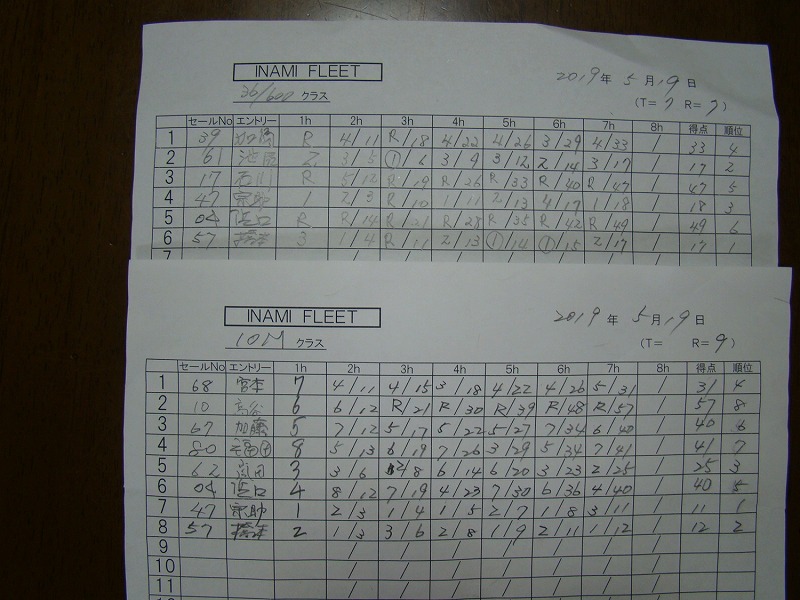 INAMI FLEET
2019年 5月19日
36/600 クラス
(T= 7 R= 7)
セールNo エントリー 1h 2h 3h 4h 5h 6h 7h 8h 得点 順位
1 39 加藤 R 4/11 R/18 4/22 4/26 3/29 4/33 / 33 4
2 61 池田 2 3/5 ①/6 3/9 3/12 2/14 3/17 / 17 2
3 17 石川 R 5/12 R/19 R/26 R/33 R/40 R/47 / 47 5
4 47 宗助 1 2/3 R/10 1/11 2/13 4/17 1/18 / 18 3
5 04 浜口 R R/14 R/21 R/28 R/35 R/42 R/49 / 49 6
6 57 橋本 3 1/4 R/11 2/13 ①/14 ①/15 2/17 / 17 1
7 / / / / / / /
INAMI FLEET
2019年 5月19日
10M クラス
(T= R= 9)
セールNo エントリー 1h 2h 3h 4h 5h 6h 7h 8h 得点 順位
1 68 宮本 7 4/11 4/15 3/18 4/22 4/26 5/31 / 31 4
2 10 高谷 6 6/12 R/21 R/30 R/39 R/48 R/57 / 57 8
3 67 加藤 5 7/12 5/17 5/22 5/27 7/34 6/40 / 40 6
4 80 福田 8 5/13 6/19 7/26 3/29 5/34 7/41 / 41 7
5 62 3 3/6 2/8 6/14 6/20 3/23 2/25 / 25 3
6 04 浜口 4 8/12 7/19 4/23 7/30 6/36 4/40 / 40 5
7 47 宗助 1 2/3 1/4 1/5 2/7 1/8 3/11 / 11 1
8 57 橋本 2 1/3 3/6 2/8 1/9 2/11 1/12 / 12 2
9 / / / / / / /
10 / / / / / / /
11 / / / / / / /